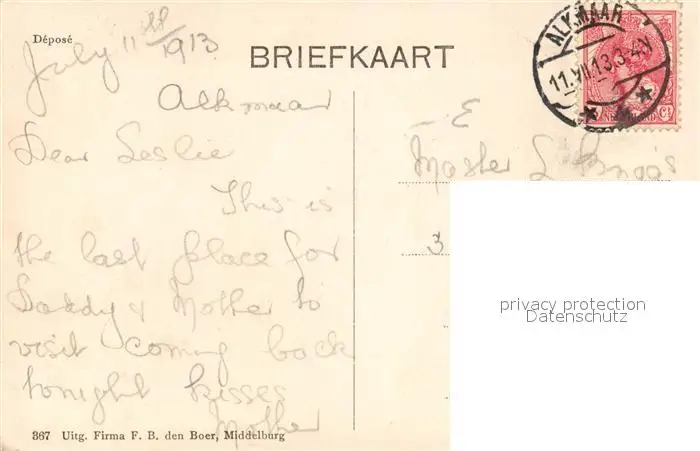 Déposé
July 11th 1913
BRIEFKAART
ALKMAAR
11.VII.13.3-4N
Alkmaar
Dear Leslie
This is
the last place for
Daddy & Mother to
visit coming back
tonight kisses
Mother
E
Master L
3
privacy protection
Datenschutz
367 Uitg. Firma F. B. den Boer, Middelburg